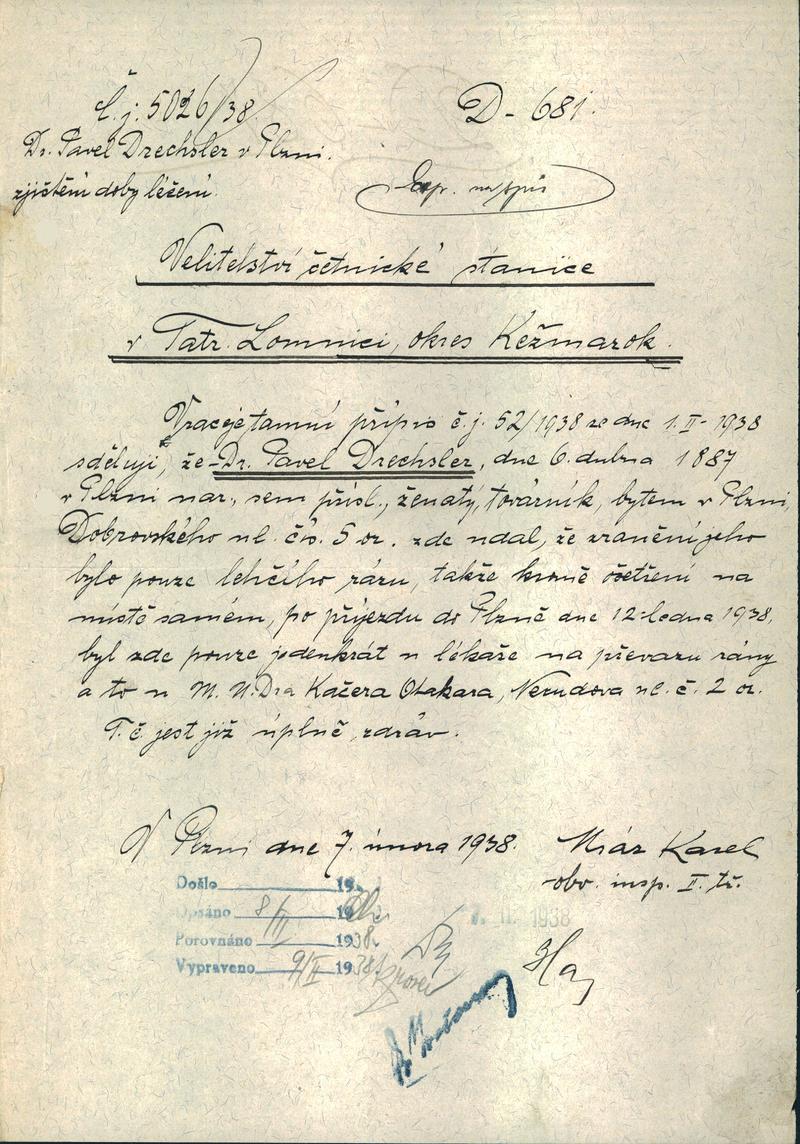 Č.j. 5026/38.
D - 681.
Dr. Pavel Drechsler v Plzni.
zjištění doby léčení.
Exp. na spis
Velitelství četnické stanice
v Tatr. Lomnici, okres Kežmarok.
Vraceje tamní přípis č.j. 52/1938 ze dne 1.II-1938
sděluji, že - Dr. Pavel Drechsler, dne 6. dubna 1887
v Plzni nar., sem přísl., ženatý, továrník, bytem v Plzni,
Dobrovského ul. čís. 5 or. zde udal, že zranění jeho
bylo pouze lehčího rázu, takže kromě ošetření na
místě samém, po příjezdu do Plzně dne 12. ledna 1938,
byl zde pouze jedenkrát u lékaře na převazu rány
a to u M.U.Dra Kačera Otakara, Nerudova ul. č. 2 or.
T.č. jest již úplně zdráv.
V Plzni dne 7. února 1938.
Mráz Karel
obv. insp. II. tř.
Došlo 19
Opsáno 8/II 19
7. II. 1938
Porovnáno 1938.
Vypraveno 9/II 1938